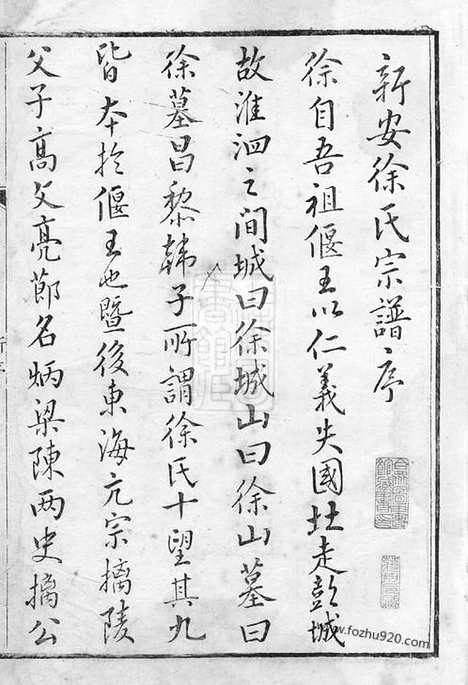 新安徐氏宗譜序
徐自吾祖偃王以仁義失國北走彭城
故淮泗之间城曰徐城山曰徐山墓曰
徐墓昌黎韓子所謂徐氏十望其九
皆本於偃王也暨後東海亢宗摛陵
父子高文亮節名炳梁陳两史摛公
www.fozhu920.com